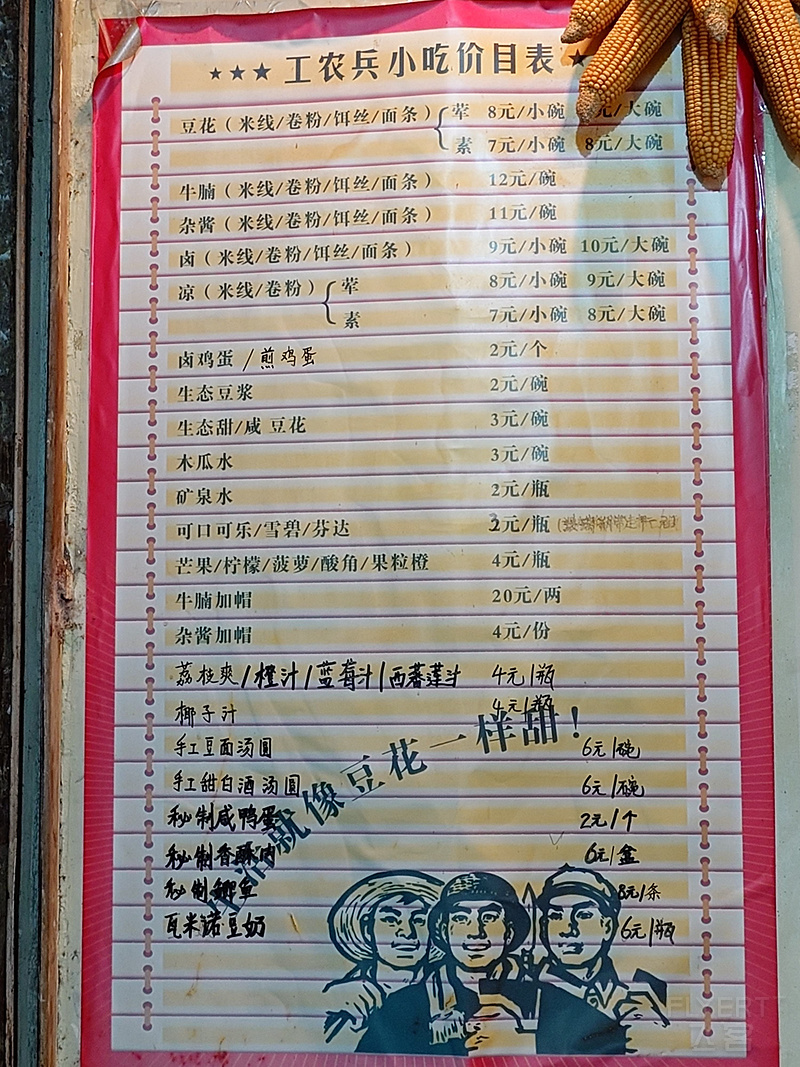 ★★★ 工农兵小吃价目表 ★
豆花（米线/卷粉/饵丝/面条） 荤 8元/小碗 元/大碗
素 7元/小碗 8元/大碗
牛腩（米线/卷粉/饵丝/面条） 12元/碗
杂酱（米线/卷粉/饵丝/面条） 11元/碗
卤（米线/卷粉/饵丝/面条） 9元/小碗 10元/大碗
凉（米线/卷粉） 荤 8元/小碗 9元/大碗
素 7元/小碗 8元/大碗
卤鸡蛋 /煎鸡蛋 2元/个
生态豆浆 2元/碗
生态甜/咸 豆花 3元/碗
木瓜水 3元/碗
矿泉水 2元/瓶
可口可乐/雪碧/芬达 3元/瓶
芒果/柠檬/菠萝/酸角/果粒橙 4元/瓶
牛腩加帽 20元/两
杂酱加帽 4元/份
荔枝爽/橙汁/蓝莓汁/西蕃莲汁 4元/瓶
椰子汁 4元/瓶
手工豆面汤圆 6元/碗
手工甜白酒汤圆 6元/碗
秘制咸鸭蛋 2元/个
秘制香酥肉 6元/盒
秘制鲫鱼 8元/条
瓦米诺豆奶 6元/瓶
生活就像豆花一样甜！